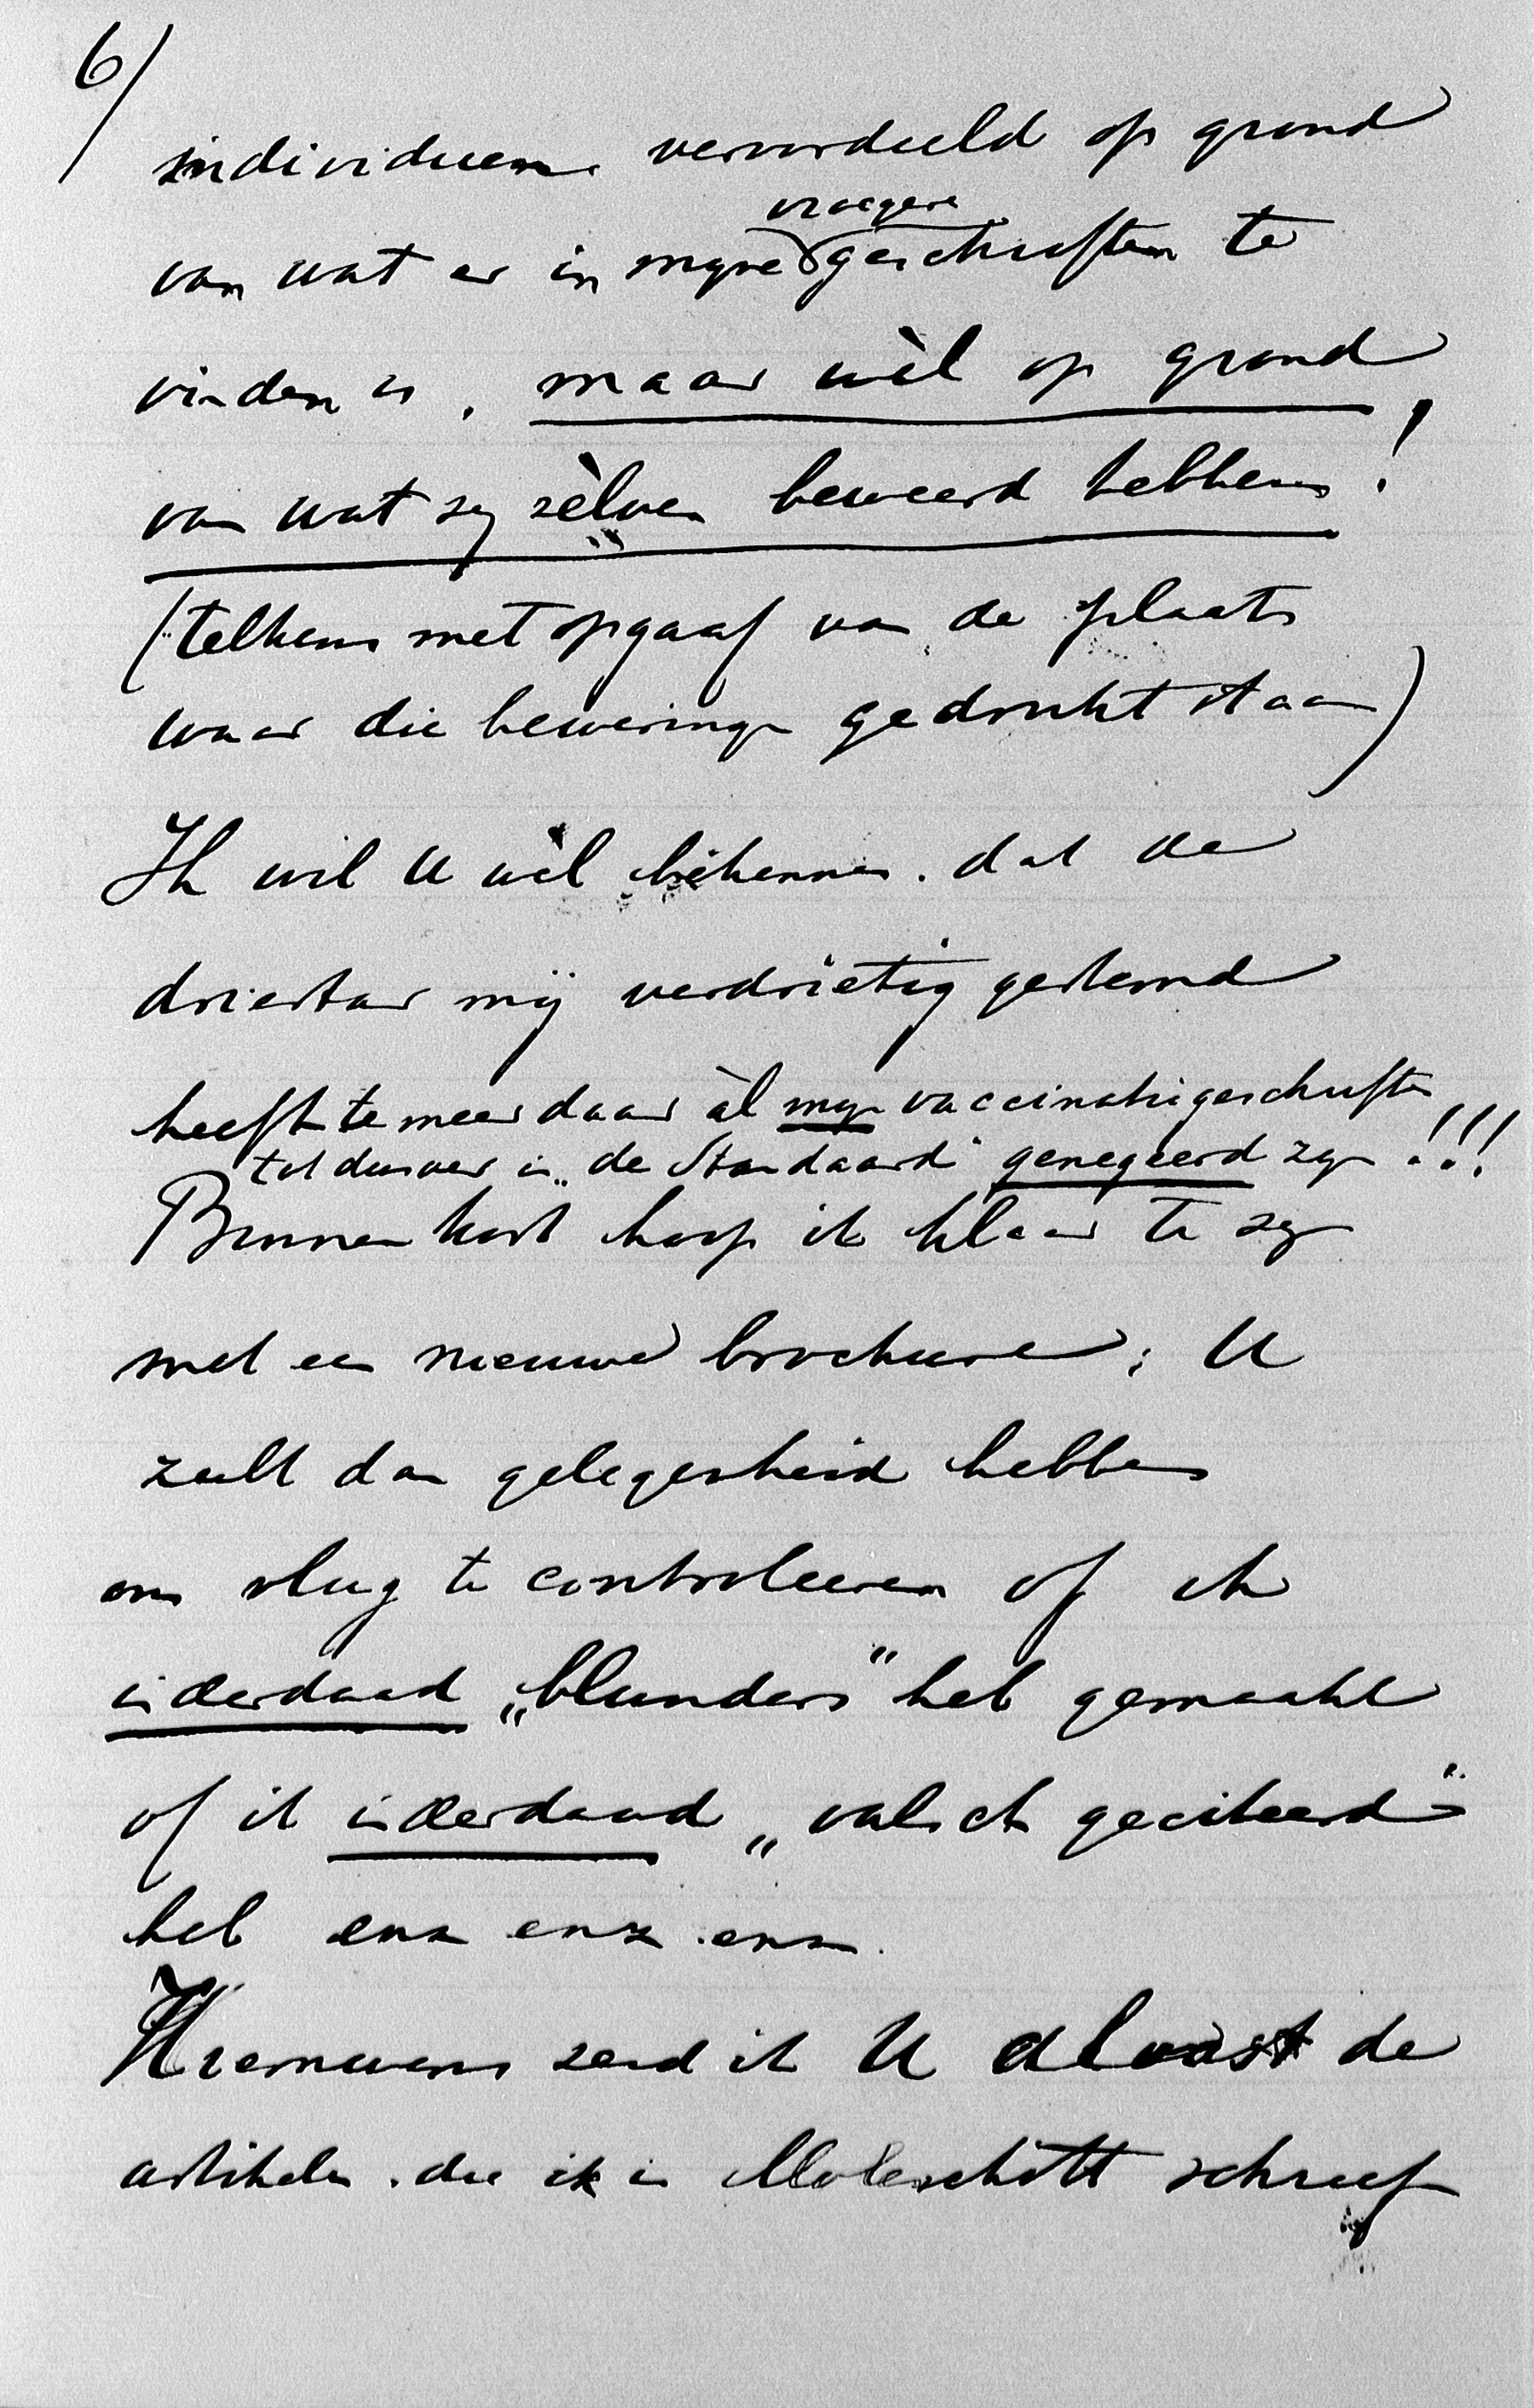 6/
individuen veroordeeld op grond
vroegere
van wat er in mijne geschriften te
vinden is, maar wèl op grond
van wat zij zèlven beweerd hebben!
(telkens met opgaaf van de plaats
waar die bewering gedrukt staan)
Ik wil U wèl bekennen. dat de
driestar mij verdrietig gestemd
heeft te meer daar àl mijn vaccinatiegeschriften
tot dusver in „de Standaard" genegeerd zijn!!!
Binnen kort hoop ik klaar te zijn
met een nieuwe brochure; U
zult dan gelegenheid hebben
om vlug te controleeren of ik
inderdaad „blunders" heb gemaakt
of ik inderdaad „valsch geciteerd"
heb enz enz enz.
Hiernevens zend ik U alvast de
artikelen die ik in Moleschott schreef